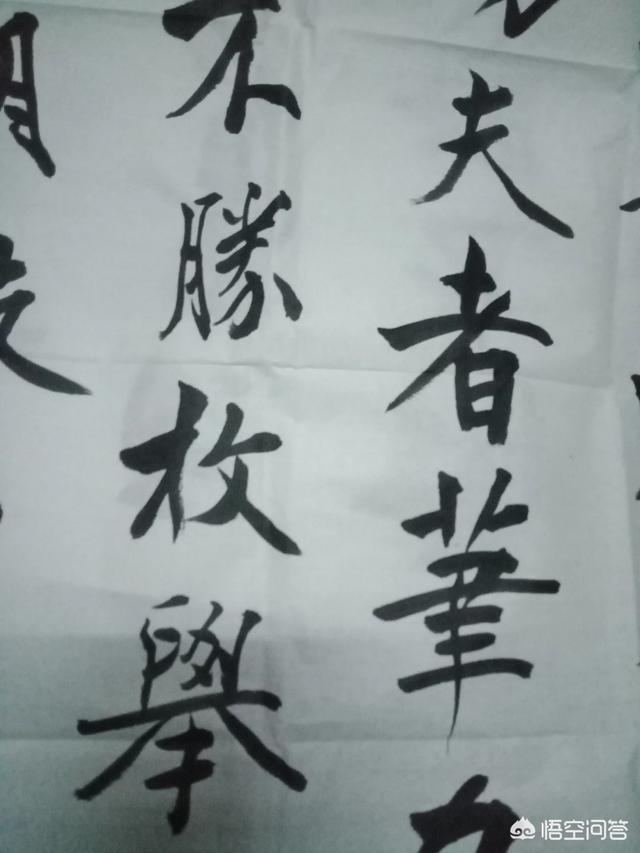 夫者筆
不勝枚舉
悟空问答